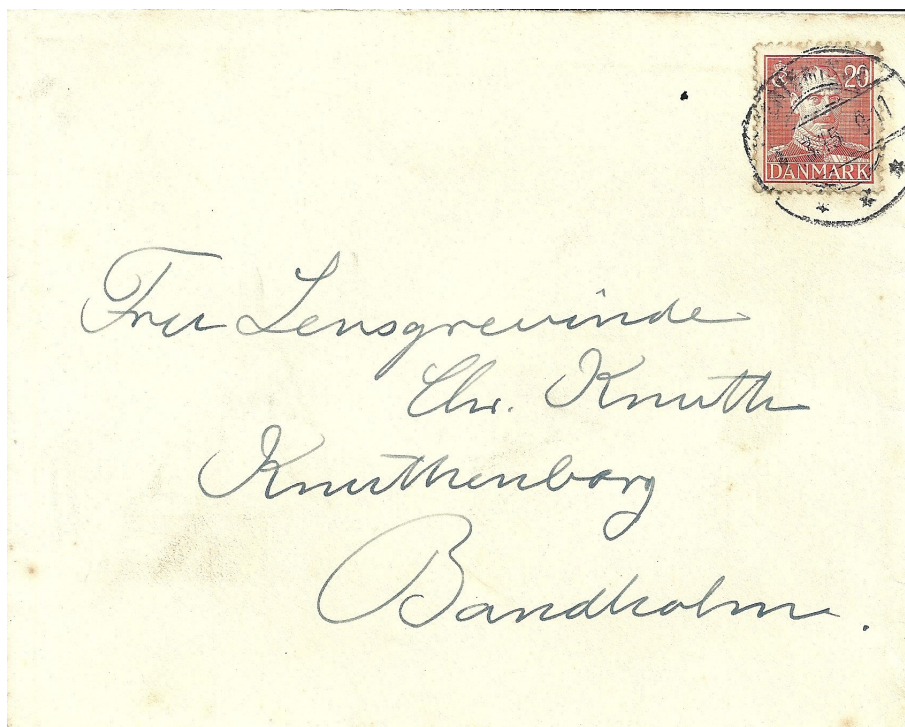 20
DANMARK
Fru Lensgrevinde
Chr. Knuth
Knuthenborg
Bandholm.